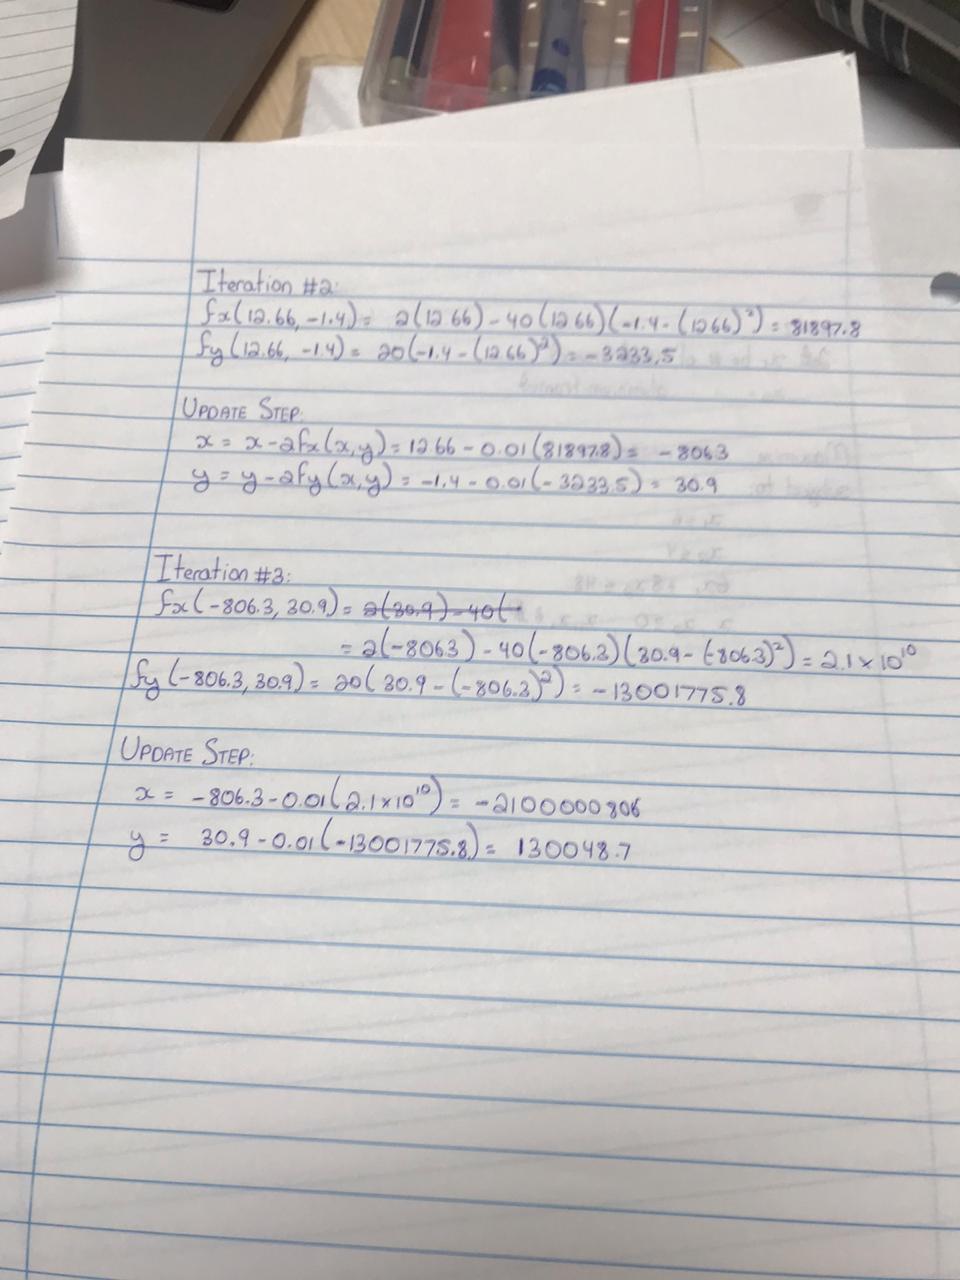 Iteration #2:
fx(12.66, -1.4) = 2(12.66) - 40(12.66)(-1.4 - (12.66)²) = 81897.8
fy(12.66, -1.4) = 20(-1.4 - (12.66)²) = -3233.5
UPDATE STEP:
x = x - αfx(x,y) = 12.66 - 0.01(81897.8) = -806.3
y = y - αfy(x,y) = -1.4 - 0.01(-3233.5) = 30.9
Iteration #3:
fx(-806.3, 30.9) = 2(30.9) - 40(-
= 2(-806.3) - 40(-806.3)(30.9 - (-806.3)²) = 2.1 × 10¹⁰
fy(-806.3, 30.9) = 20(30.9 - (-806.3)²) = -13001775.8
UPDATE STEP:
x = -806.3 - 0.01(2.1×10¹⁰) = -2100000806
y = 30.9 - 0.01(-13001775.8) = 130048.7